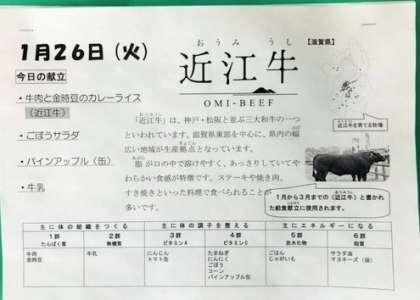 1月26日（火）
今日の献立
・牛肉と金時豆のカレーライス
（近江牛）
・ごぼうサラダ
・パインアップル（缶）
・牛乳
おうみ うし
近江牛
OMI-BEEF
【滋賀県】
「近江牛」は、神戸・松阪と並ぶ三大和牛の一つ
といわれています。滋賀県東部を中心に、県内の幅
広い地域が生産拠点となっています。
脂が口の中で溶けやすく、あっさりしていてや
わらかい食感が特徴です。ステーキや焼き肉、
すき焼きといった料理で食べられることが
多いです。
近江牛を育てる牧場
1月から3月までの《近江牛》と書かれ
た給食献立に使用されます。
主に体の組織をつくる 主に体の調子を整える 主にエネルギーになる
1群 2群 3群 4群 5群 6群
たんぱく質 無機質 ビタミンA ビタミンC 炭水化物 脂質
牛肉 牛乳 にんじん たまねぎ ごはん サラダ油
金時豆 トマト缶 にんにく じゃがいも マヨネーズ（卵）
ごぼう
コーン
パインアップル缶